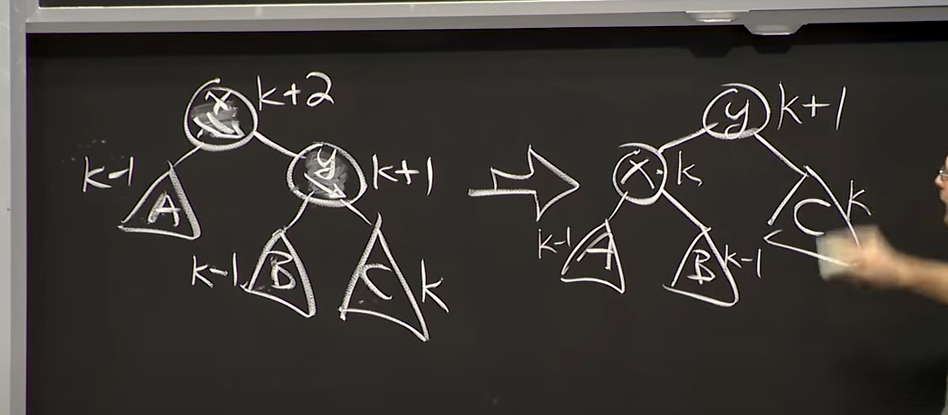 x k+2
k-1 A
y k+1
k-1 B
C k
y k+1
x k
C k
k-1 A
B k-1